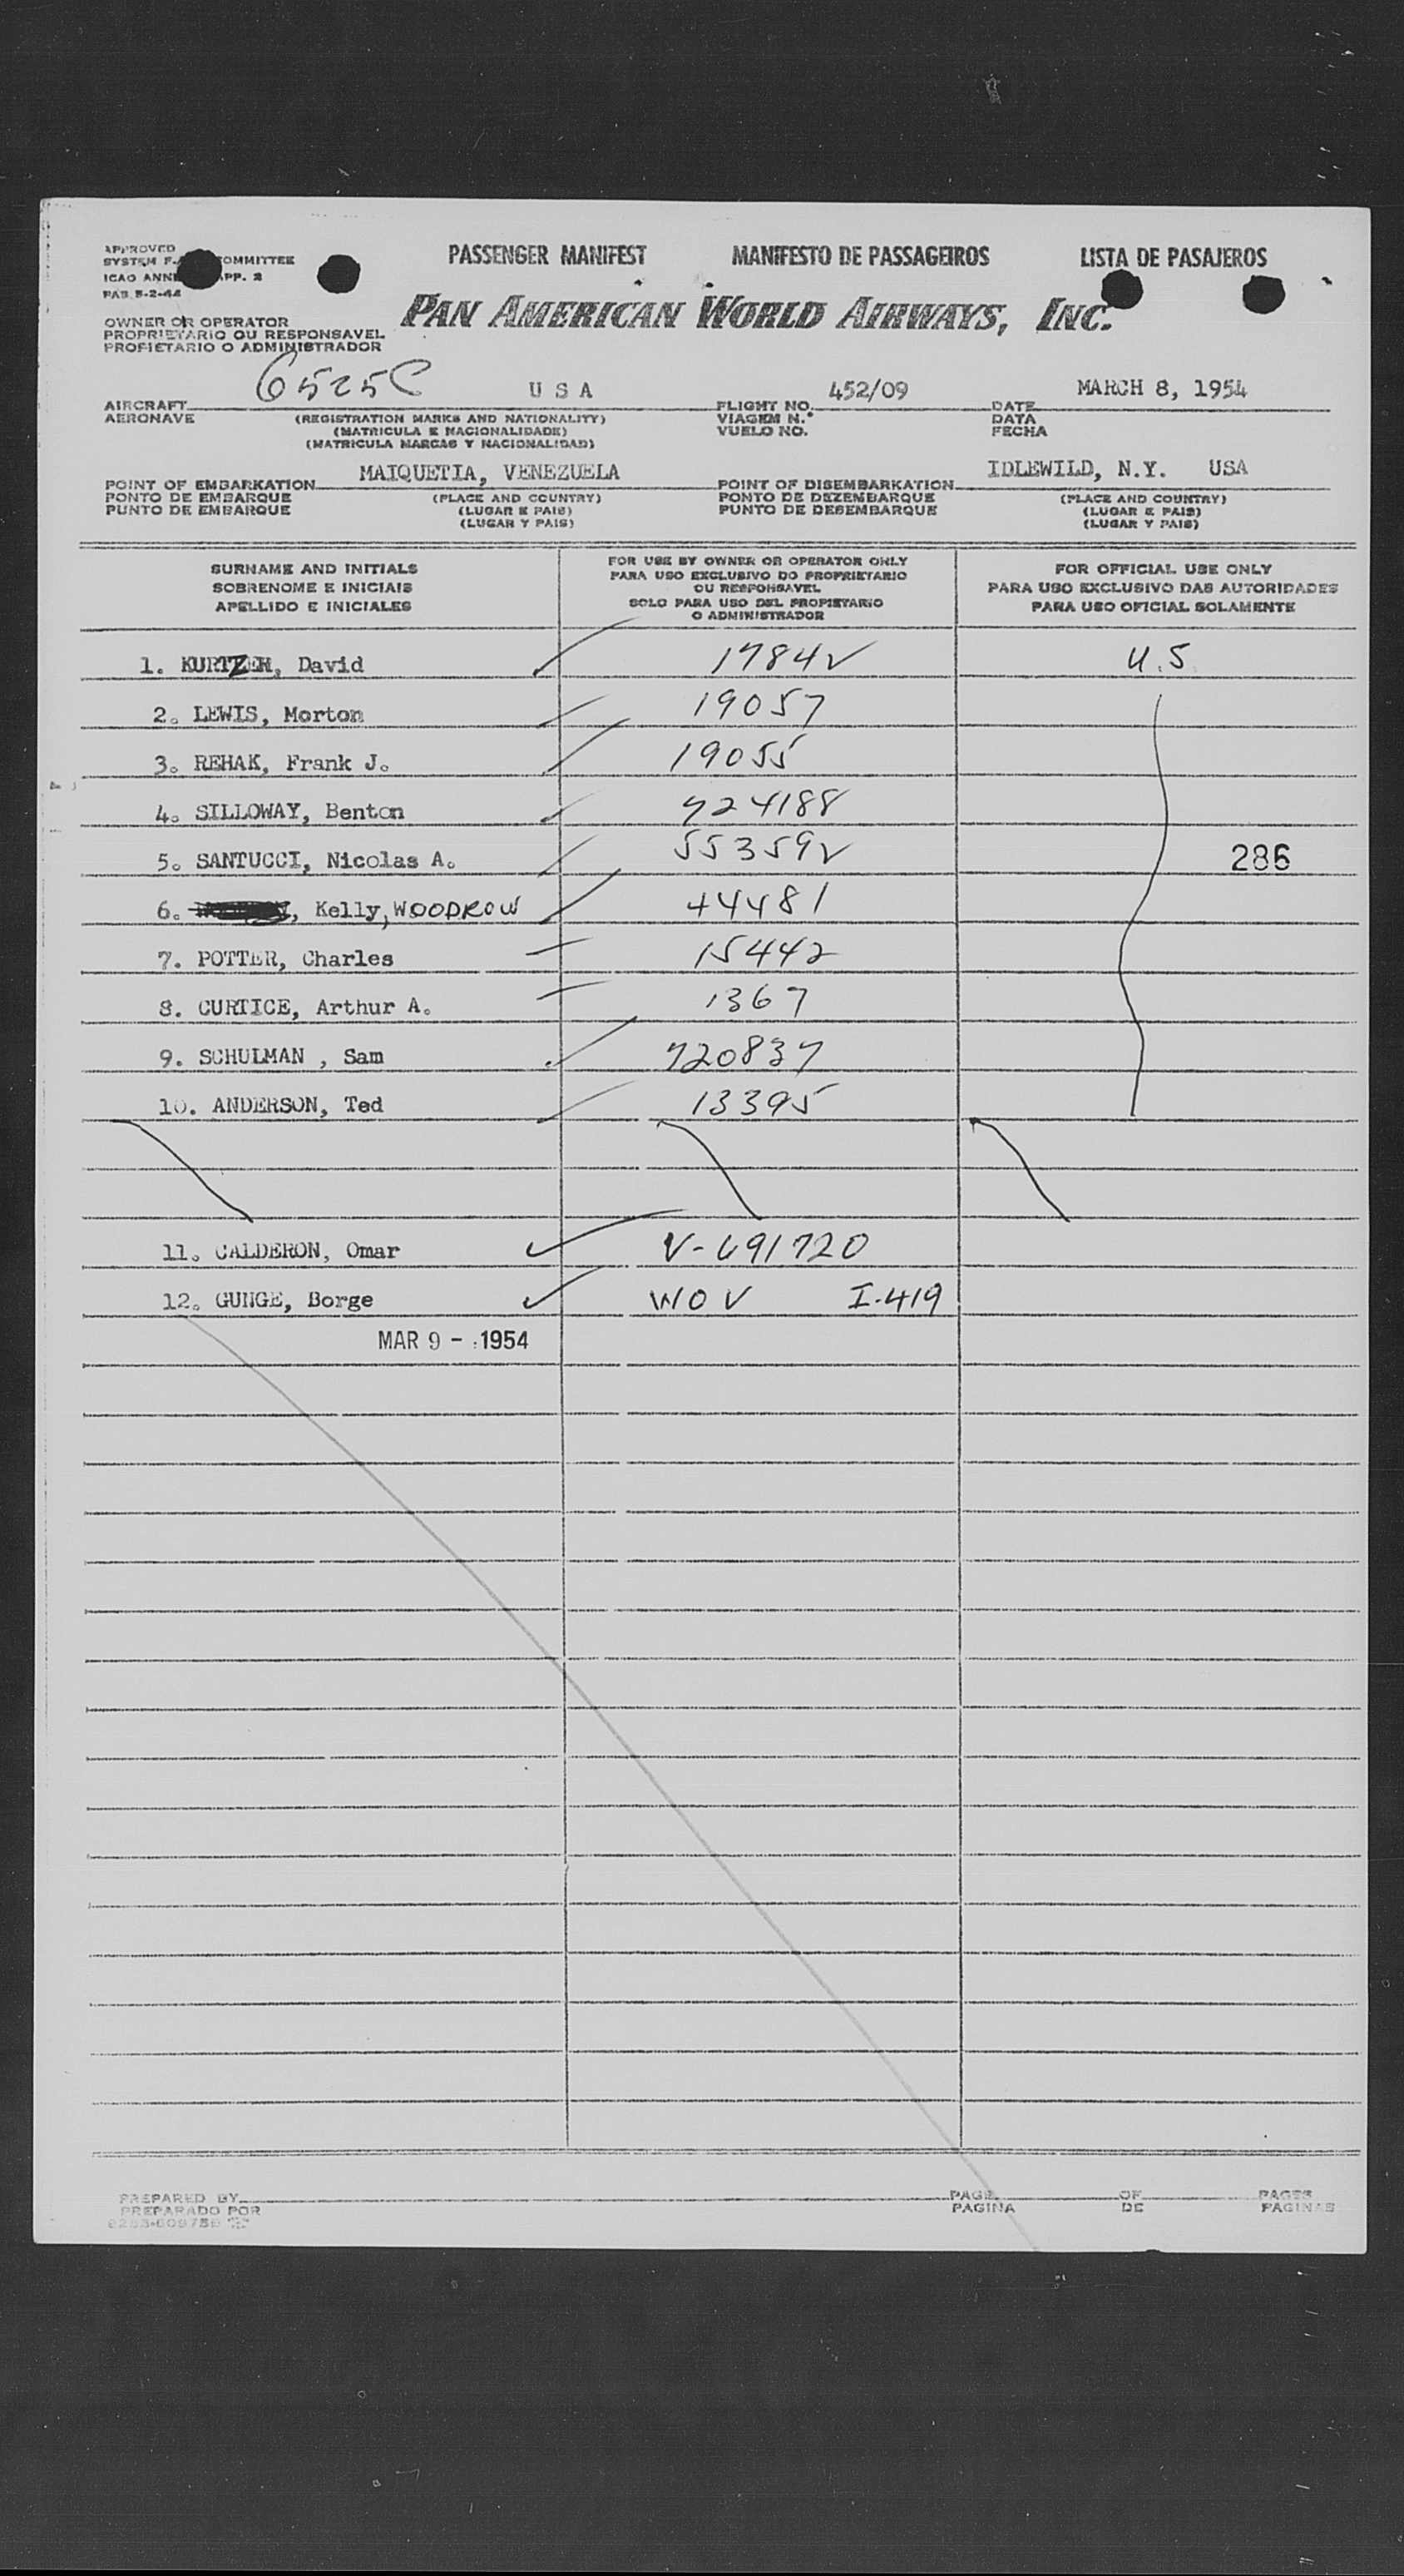 PASSENGER MANIFEST MANIFESTO DE PASSAGEIROS LISTA DE PASAJEROS
APPROVED
SYSTEM F. COMMITTEE
ICAO ANNE APP. 2
PAN AMERICAN WORLD AIRWAYS, INC.
OWNER OR OPERATOR
PROPRIETARIO OU RESPONSAVEL
PROPIETARIO O ADMINISTRADOR
6525C U S A 452/09 MARCH 8, 1954
AIRCRAFT FLIGHT NO. DATE
AERONAVE (REGISTRATION MARKS AND NATIONALITY) VIAGEM N.º DATA
(MATRICULA E NACIONALIDADE) VUELO NO. FECHA
(MATRICULA MARCAS Y NACIONALIDAD)
MAIQUETIA, VENEZUELA IDLEWILD, N.Y. USA
POINT OF EMBARKATION POINT OF DISEMBARKATION
PONTO DE EMBARQUE (PLACE AND COUNTRY) PONTO DE DEZEMBARQUE (PLACE AND COUNTRY)
PUNTO DE EMBARQUE (LUGAR E PAIS) PUNTO DE DESEMBARQUE (LUGAR E PAIS)
(LUGAR Y PAIS) (LUGAR Y PAIS)
SURNAME AND INITIALS
SOBRENOME E INICIAIS
APELLIDO E INICIALES
FOR USE BY OWNER OR OPERATOR ONLY
PARA USO EXCLUSIVO DO PROPRIETARIO
OU RESPONSAVEL
SOLO PARA USO DEL PROPIETARIO
O ADMINISTRADOR
FOR OFFICIAL USE ONLY
PARA USO EXCLUSIVO DAS AUTORIDADES
PARA USO OFICIAL SOLAMENTE
1. KURTZER, David U.S.
2. LEWIS, Morton 19057
3. REHAK, Frank J. 19055
4. SILLOWAY, Benton 724188
5. SANTUCCI, Nicolas A. 286
6. , Kelly, WOODROW 44481
7. POTTER, Charles 15442
8. CURTICE, Arthur A. 1367
9. SCHULMAN , Sam 720837
10. ANDERSON, Ted 13395
11. CALDERON, Omar V-691720
12. GUNGE, Borge WOV I-419
MAR 9 - 1954
PREPARED BY PAGE OF PAGES
PREPARADO POR PAGINA DE PAGINAS